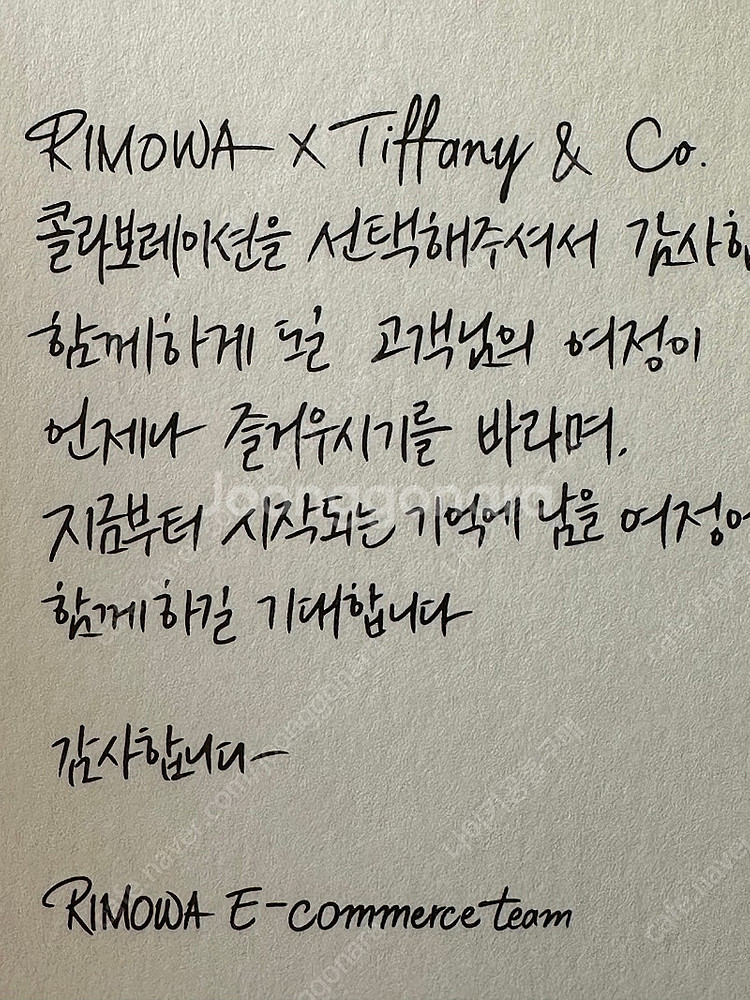 RIMOWA X Tiffany & Co.
콜라보레이션을 선택해주셔서 감사합
함께하게 될 고객님의 여정이
언제나 즐거우시기를 바라며,
지금부터 시작되는 기억에 남을 여정에
함께하길 기대합니다
감사합니다
RIMOWA E-commerce team
Joonggonara